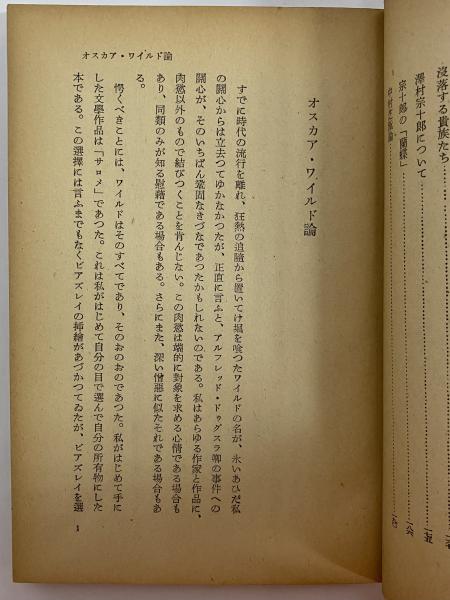 没落する貴族たち
澤村宗十郎について
宗十郎の「蘭蝶」
オスカア・ワイルド論
オスカア・ワイルド論
すでに時代の流行を離れ、狂熱の追隨から置いてけ堀を喰つたワイルドの名が、永いあひだ私
の關心からは立去つてゆかなかつたが、正直に言ふと、アルフレッド・ドゥグラス卿の事件への
關心が、そのいちばん鞏固なきづなであつたかもしれないのである。私はあらゆる作家と作品に、
肉慾以外のもので結びつくことを肯んじない。この肉慾は端的に對象を求める心情である場合も
あり、同類のみが知る慰藉である場合もある。さらにまた、深い憎惡に似たそれである場合もあ
る。
愕くべきことには、ワイルドはそのすべてであり、そのおのおのであつた。私がはじめて手に
した文學作品は「サロメ」であつた。これは私がはじめて自分の目で選んで自分の所有物にした
本である。この選擇には言ふまでもなくビアズレイの挿繪があづかつてゐたが、ビアズレイを選
1